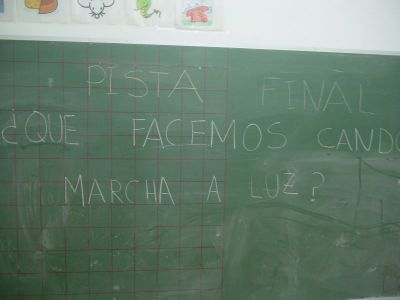 PISTA FINAL
¿QUE FACEMOS CANDO
MARCHA A LUZ?